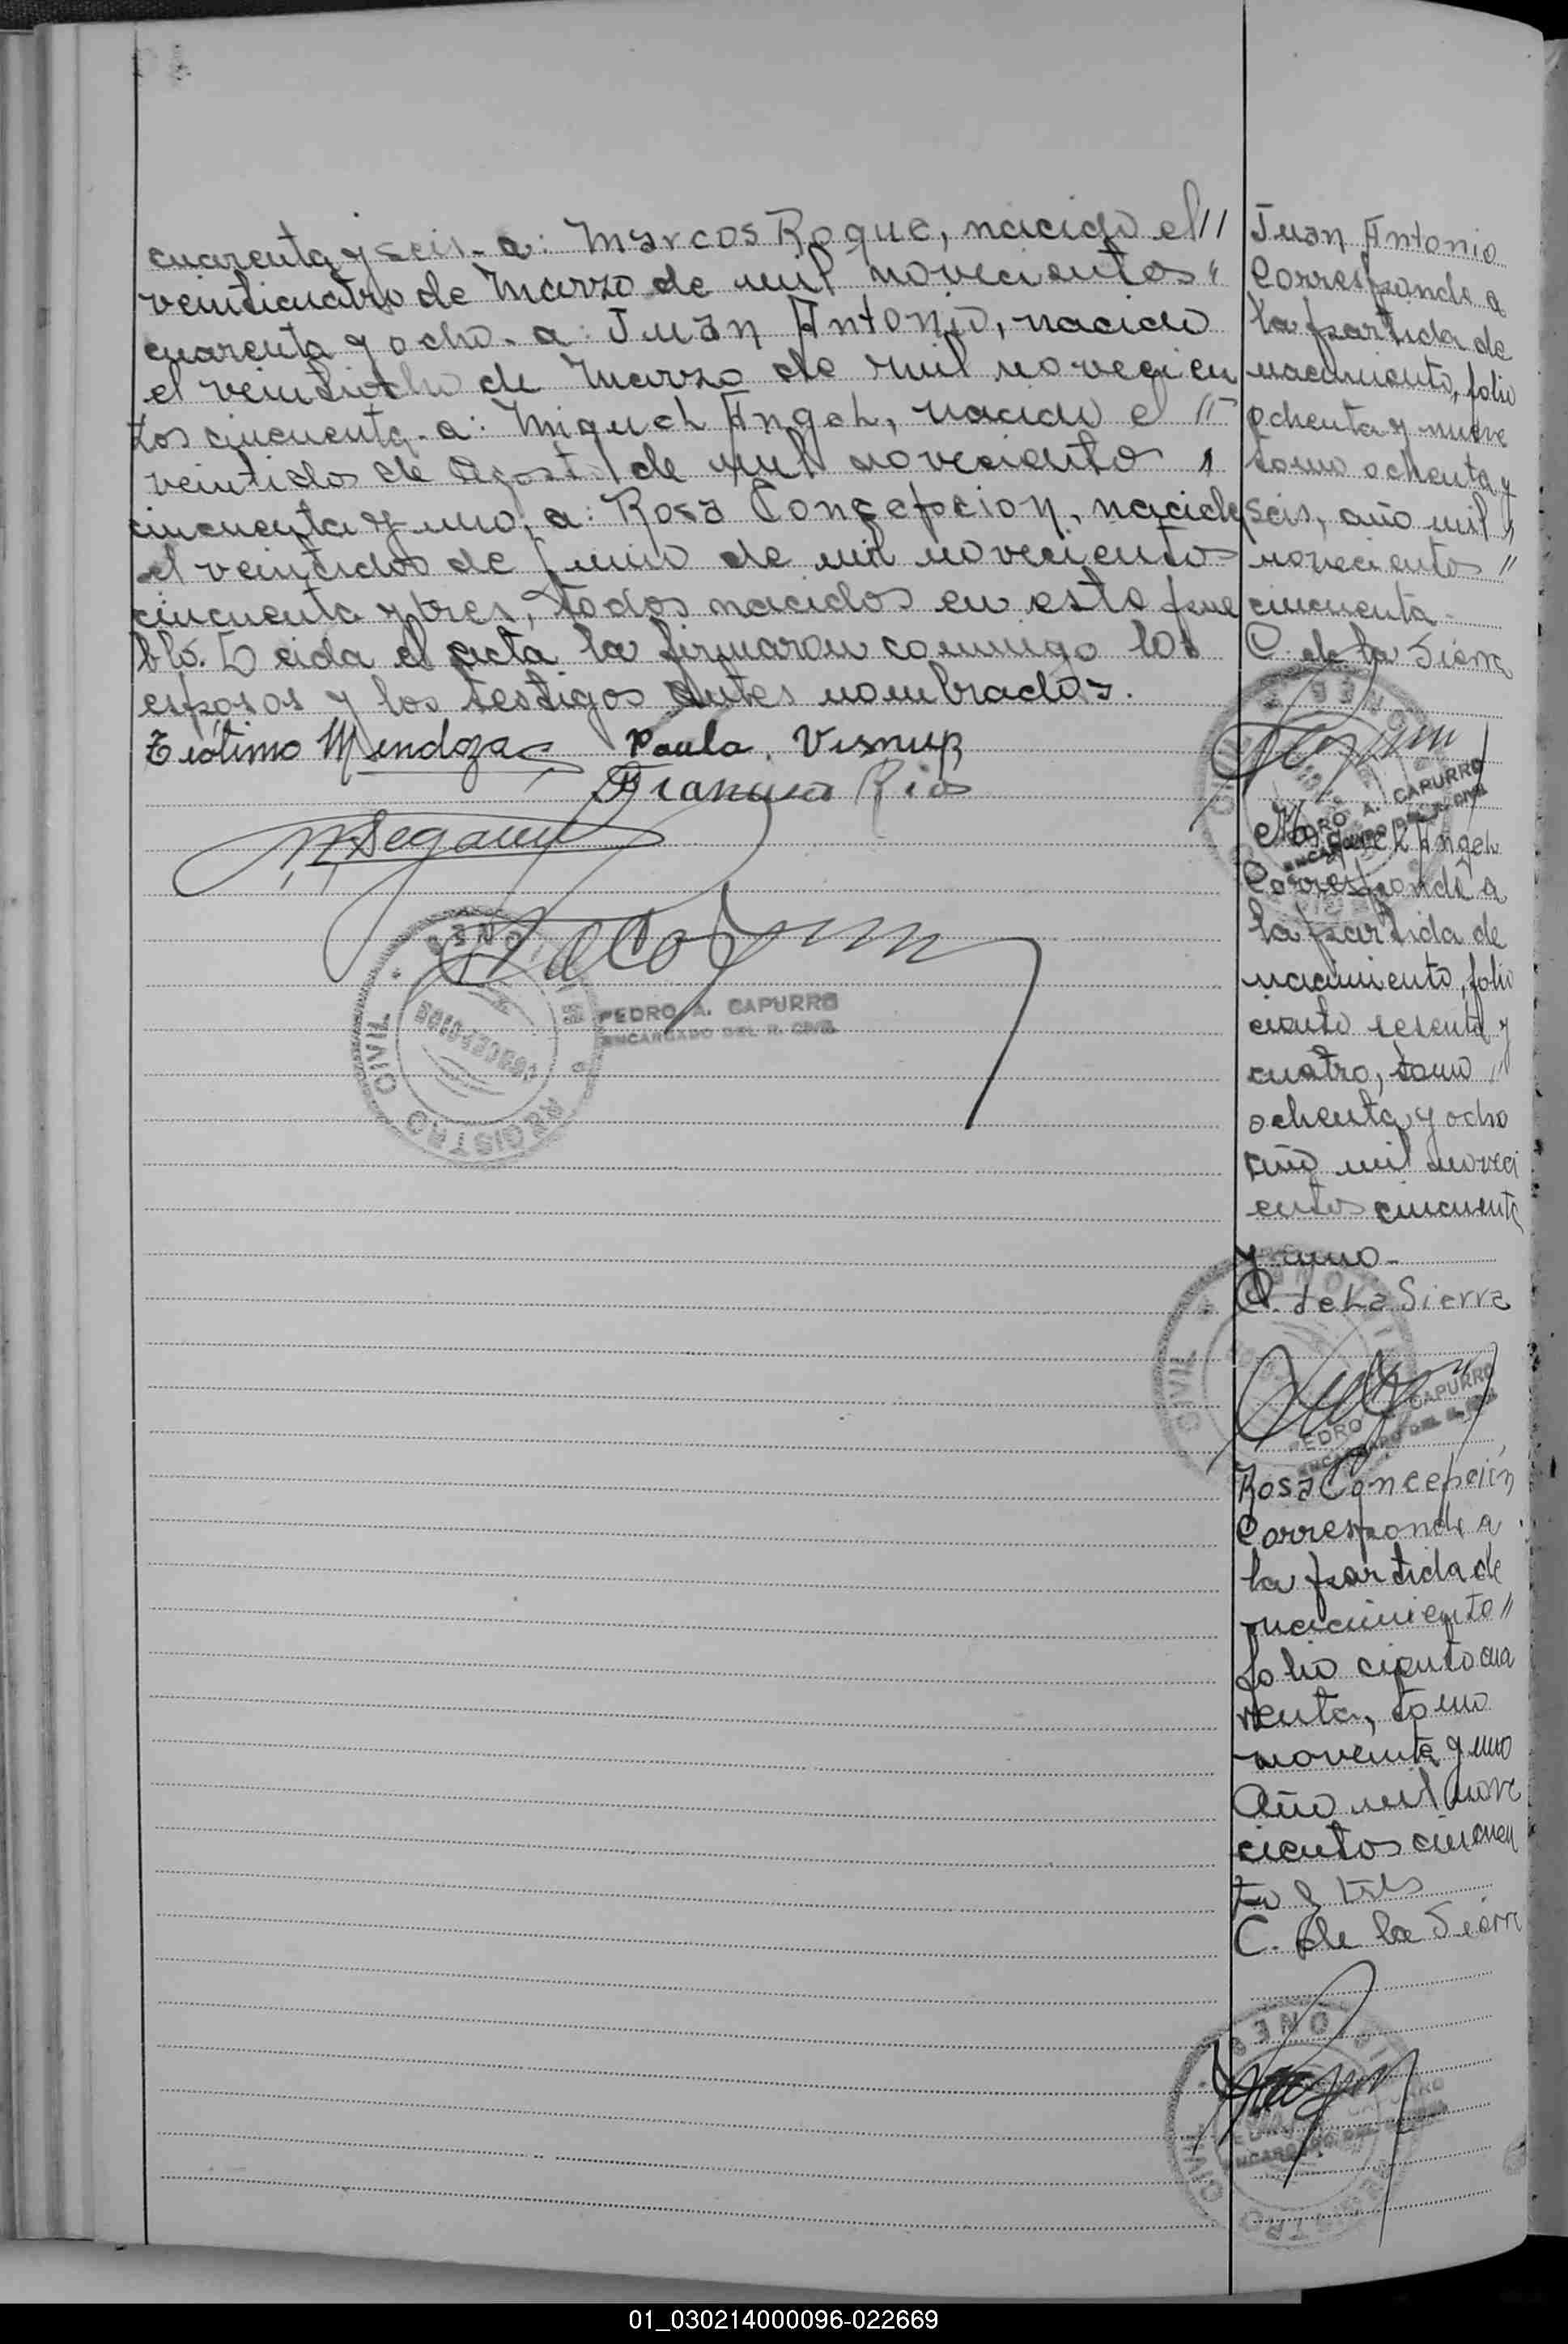 cuarenta y seis. a: Marcos Roque, nacido el //
veinticuatro de Marzo de mil novecientos "
cuarenta y ocho. a: Juan Antonio, nacido
el veintiocho de Marzo de mil novecien
tos cincuenta. a: Miguel Angel, nacido el //
veintidos de Agosto de mil novecientos
cincuenta y uno, a: Rosa Concepcion, nacida
el veintidos de Junio de mil novecientos
cincuenta y tres, todos nacidos en este pue
blo. Leida el acta la firmaron conmigo los
esposos y los testigos antes nombrados.
Teótimo Mendoza Paula Visnup
Rios
PEDRO A. CAPURRO
ENCARGADO DEL R. CIVIL
REGISTRO CIVIL
Juan Antonio
Corresponde a
la partida de
nacimiento, folio
ochenta y nueve
tomo ochenta y
seis, año mil "
novecientos "
cincuenta
C. de la Sierra
PEDRO A. CAPURRO
ENCARGADO DEL R. CIVIL
Miguel Angel
Corresponde a
la partida de
nacimiento, folio
ciento sesenta y
cuatro, tomo "
ochenta y ocho
año mil noveci
entos cincuenta
y uno.
C. de La Sierra
CIVIL
PEDRO A. CAPURRO
ENCARGADO DEL R. CIVIL
Rosa Concepción
Corresponde a
la partida de
nacimiento "
folio ciento cua
renta, tomo
noventa y uno
Año mil nove
cientos cincuen
ta y tres
C. de la Sierra
CAPURRO
ENCARGADO DEL R. CIVIL
REGISTRO CIVIL
01_030214000096-022669